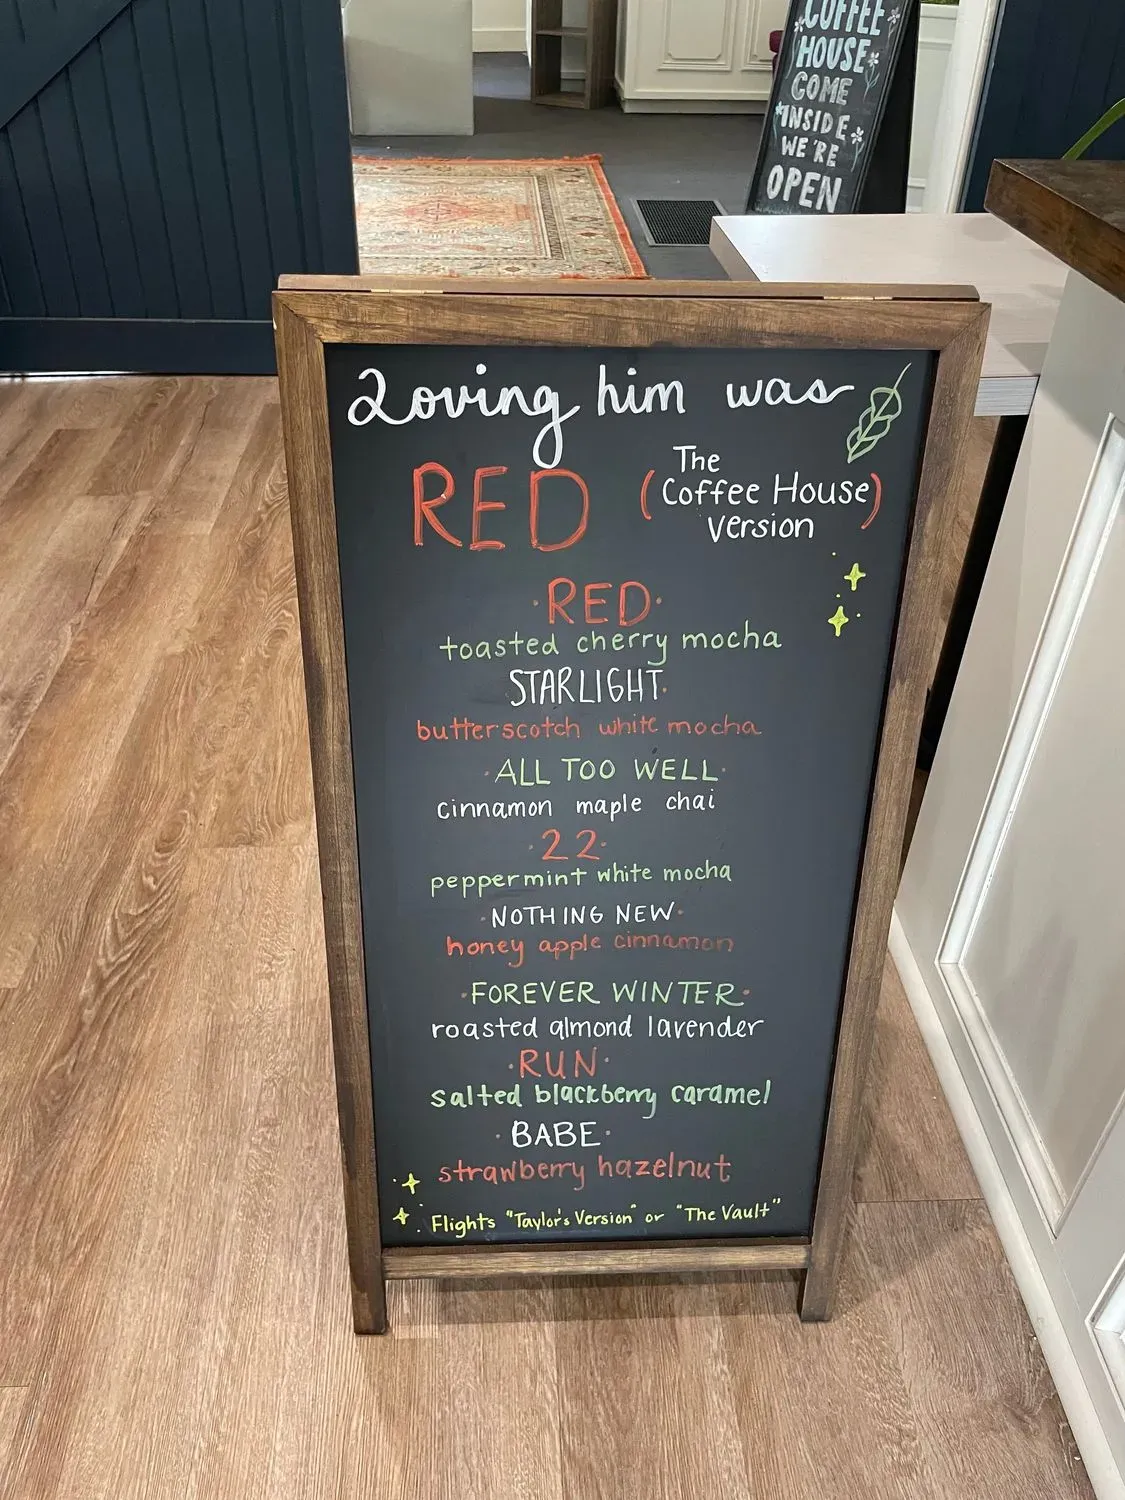 COFFEE
HOUSE
COME
INSIDE
WE'RE
OPEN
Loving him was
RED (The Coffee House Version)
RED
toasted cherry mocha
STARLIGHT
butterscotch white mocha
ALL TOO WELL
cinnamon maple chai
22
peppermint white mocha
NOTHING NEW
honey apple cinnamon
FOREVER WINTER
roasted almond lavender
RUN
salted blackberry caramel
BABE
strawberry hazelnut
Flights "Taylor's Version" or "The Vault"